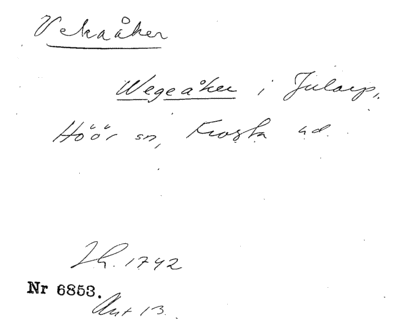 Vekaåker
Wegeåker i Jularp,
Höör sn, Frosta hd.
Jh. 1742
Nr 6853.
Ant 13.